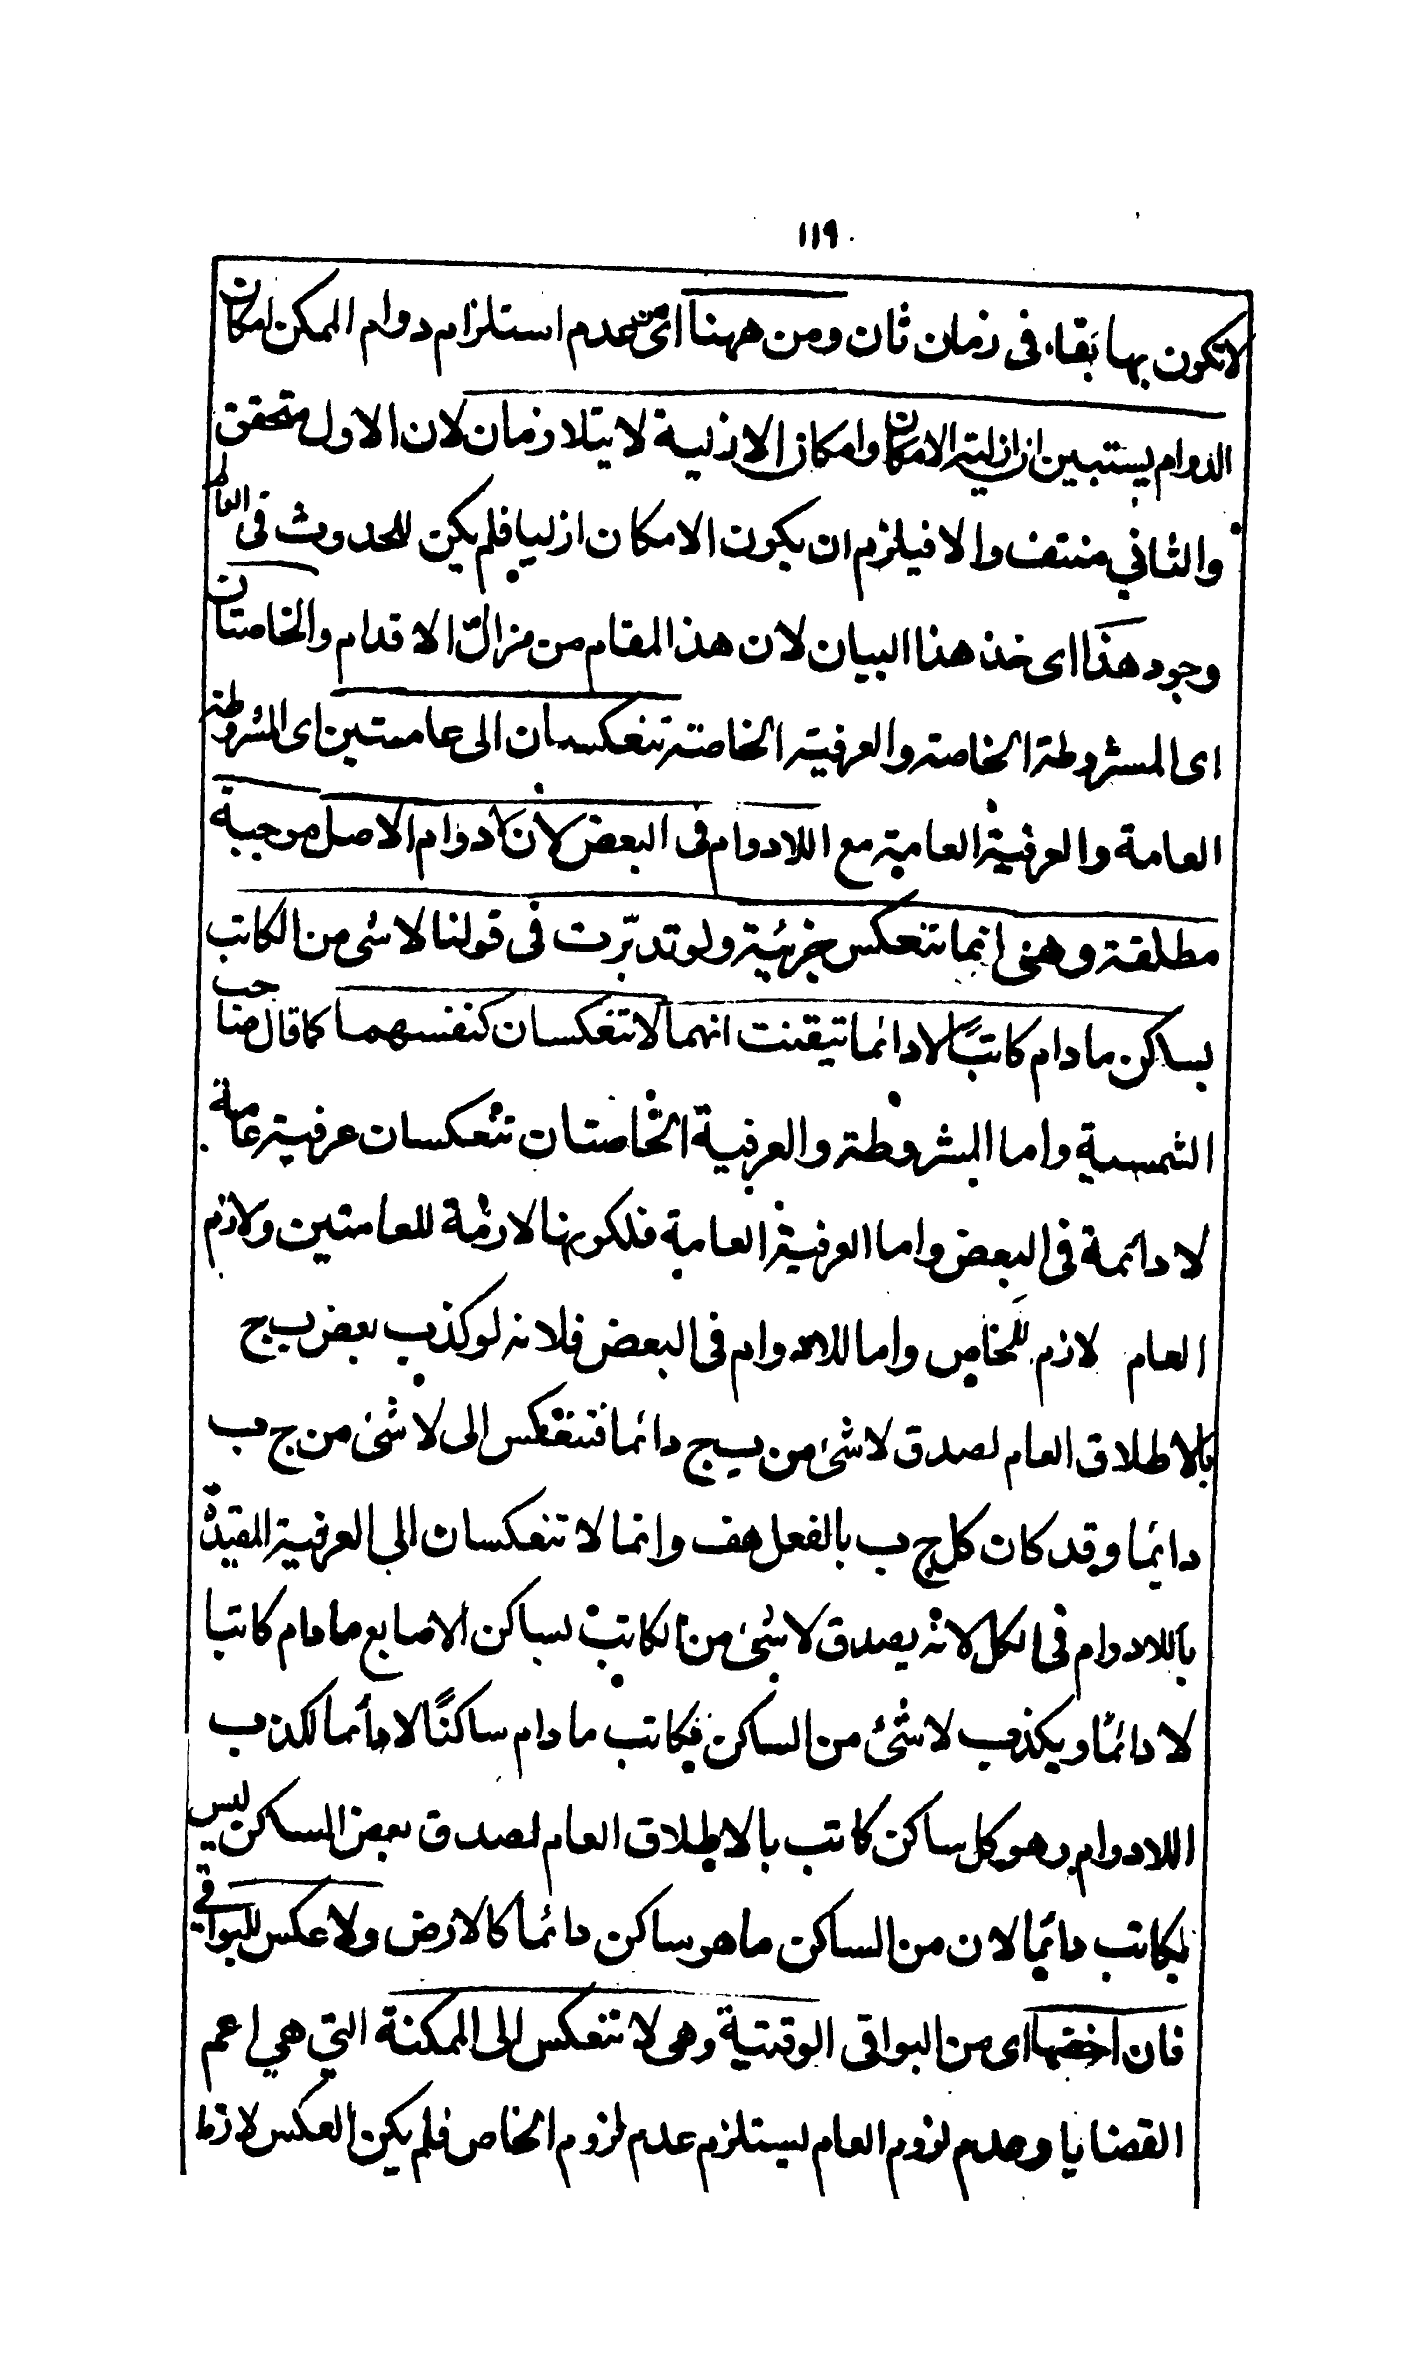 ١١٩
لا تكون بها بقاء فى زمان ثان ومن ههنا اى من عدم استلزام دوام الممكن امكان
الدوام يستبين ان ازلية الامكان وامكان الازلية لا يتلازمان لان الاول متحقق
والثاني منتف والا فيلزم ان يكون الامكان ازليا فلم يكن للحدوث فى العالم
وجود هذا اى خذ هذا البيان لان هذا المقام من مزالّ الاقدام والخاصتان
اى المشروطة الخاصة والعرفية الخاصة تنعكسان الى عامتين اى المشروطة
العامة والعرفية العامية مع اللادوام فى البعض لان لادوام الاصل موجبة
مطلقة وهى انما تنعكس جزئية ولو تدبّرت فى قولنا لا شى من الكاتب
بساكن ما دام كاتبًا لا دائما تيقنت انهما لا تنعكسان كنفسهما كما قال صاحب
الشمسية واما المشروطة والعرفية الخاصتان تنعكسان عرفية عامة
لا دائمة فى البعض واما العرفية العامة فلكونها لازمة للعامتين ولازم
العام لازم للخاص واما اللادوام فى البعض فلانه لو كذب بعض ب ج
بالاطلاق العام لصدق لا شئ من ب ج دائما فتنعكس الى لا شئ من ج ب
دايما وقد كان كل ج ب بالفعل هف وانما لا تنعكسان الى العرفية المقيدة
باللادوام فى الكل لانه يصدق لا شئ من الكاتب بساكن الاصابع ما دام كاتبا
لا دائمًا ويكذب لا شئ من الساكن بكاتب ما دام ساكنًا لا دائما لكذب
اللادوام وهو كل ساكن كاتب بالاطلاق العام لصدق بعض الساكن ليس
بكاتب دائما لان من الساكن ما هو ساكن دائما كالارض ولا عكس للبواقي
فان اخصّها اى من البواقى الوقتية وهى لا تنعكس الى الممكنة التي هي اعم
القضايا وعدم لزوم العام يستلزم عدم لزوم الخاص فلم يكن العكس لازما